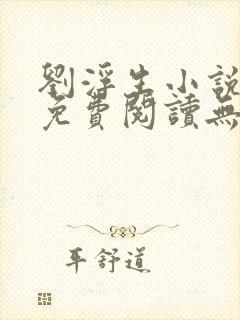 劉浮生小說
免費閱讀無
平舒道